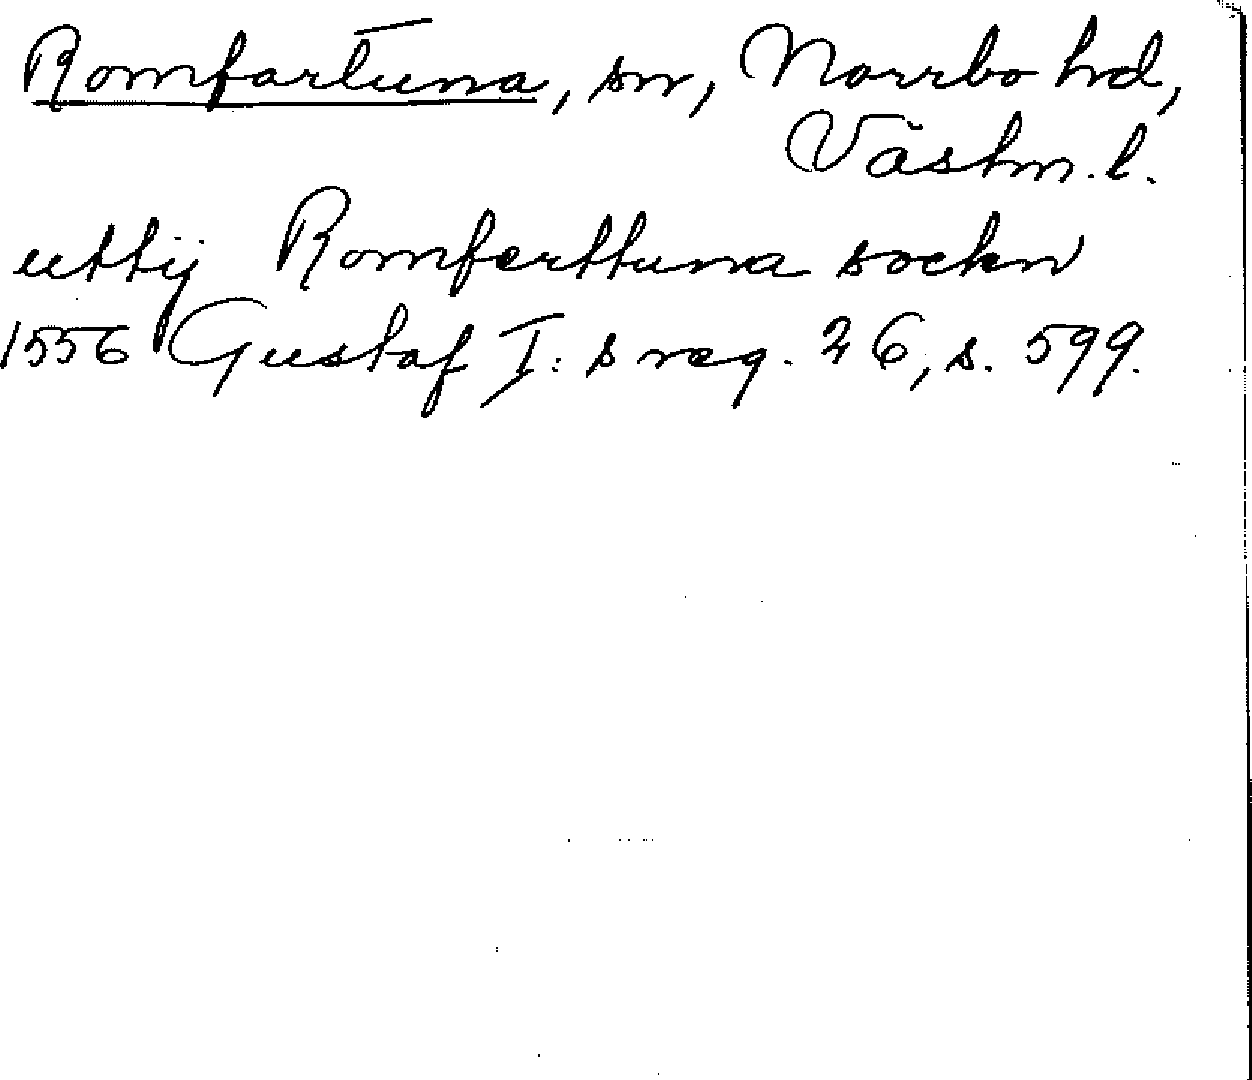 Romfartuna, sn, Norrbo hd,
Västm. l.
uttij Romferttuna sockn
1556 Gustaf I:s reg. 26, s. 599.